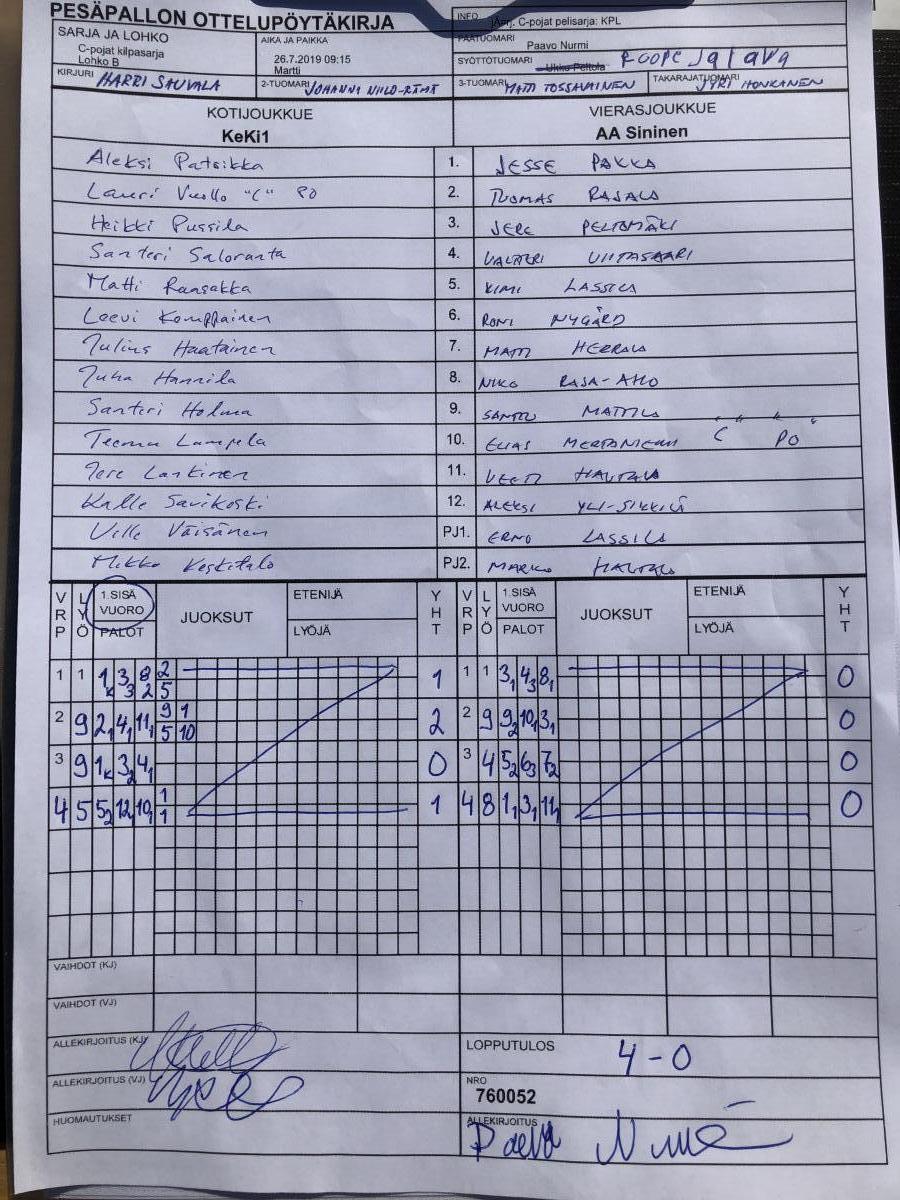 PESÄPALLON OTTELUPÖYTÄKIRJA
INFO
järj. C-pojat pelisarja: KPL
SARJA JA LOHKO
C-pojat kilpasarja
Lohko B
AIKA JA PAIKKA
26.7.2019 09:15
Martti
PÄÄTUOMARI
Paavo Nurmi
SYÖTTÖTUOMARI Ukko Peltola ROOPE Jalava
KIRJURI HARRI SAUVALA
2-TUOMARI JOHANNA NIILO-RÄMÄ
3-TUOMARI MATTI TOSSAVAINEN
TAKARAJATUOMARI JYRI HONKANEN
KOTIJOUKKUE
KeKi1
VIERASJOUKKUE
AA Sininen
Aleksi Patsikka 1. JESSE PAKKA
Lauri Vuollo "C" PO 2. TUOMAS RAJALA
Heikki Pussila 3. JERE PELTOMÄKI
Santeri Saloranta 4. VALTTERI VIITASAARI
Matti Raasakka 5. KIMI LASSILA
Leevi Komppainen 6. RONI NYGÅRD
Julius Haatainen 7. MATTI HERRALA
Juha Hannila 8. NIKO RASA-AHO
Santeri Holma 9. SANTTU MATTILA
Teemu Lampela 10. ELIAS MERTANIEMI "C" "PO"
Jere Lankinen 11. VEETI HAUTALA
Kalle Savikoski 12. ALEKSI YLI-SIKKILÄ
Ville Väisänen PJ1. ERNO LASSILA
Mikko Keskitalo PJ2. MARKO HAUTALA
VRP LYÖ 1.SISÄ VUORO PALOT JUOKSUT ETENIJÄ LYÖJÄ YHT VRP LYÖ 1.SISÄ VUORO PALOT JUOKSUT ETENIJÄ LYÖJÄ YHT
1 1 1K 3 3 8 2 2 5 1 1 1 3 1 4 3 8 1 0
2 9 2 1 4 1 11 1 9 1 5 10 2 2 9 9 2 10 1 3 1 0
3 9 1K 3 2 4 1 0 3 4 5 2 6 3 7 2 0
4 5 5 2 12 1 10 1 1 1 1 4 8 1 1 3 1 11 1 0
VAIHDOT (KJ)
VAIHDOT (VJ)
ALLEKIRJOITUS (KJ)
LOPPUTULOS 4-0
ALLEKIRJOITUS (VJ)
NRO
760052
HUOMAUTUKSET
ALLEKIRJOITUS